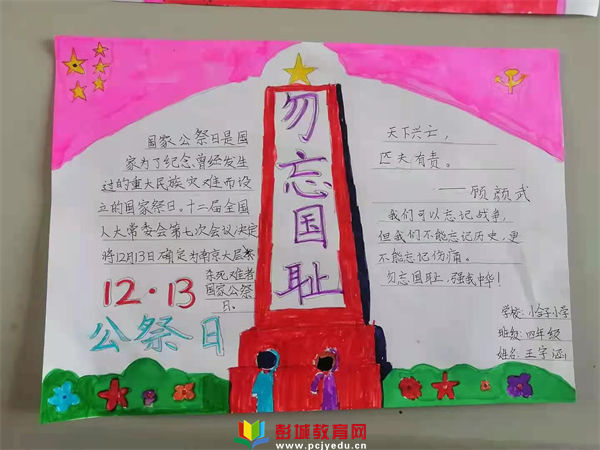 国家公祭日是国
家为了纪念曾经发生
过的重大民族灾难而设
立的国家祭日。十二届全国
人大常委会第七次会议决定
将12月13日确定为南京大屠杀
死难者
国家公祭
日。
12·13
公祭日
勿忘国耻
天下兴亡，
匹夫有责。
——顾颜武
我们可以忘记战争，
但我们不能忘记历史，更
不能忘记伤痛。
勿忘国耻，强我中华！
学校：小合子小学
班级：四年级
姓名：王宇涵
彭城教育网
www.pcjyedu.cn